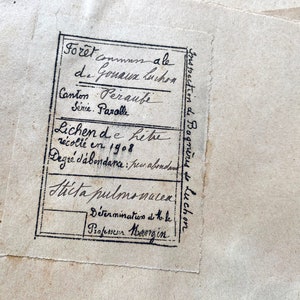 Forêt communale
de Gouaux Luchon
Canton Peraube
Série. Parcelle
Lichen de hêtre
récolté en 1908
Degré d'abondance: peu abondant
Sticta pulmonacea
Détermination de M. le
Professeur Mangin
Inspection de Bagnères de Luchon